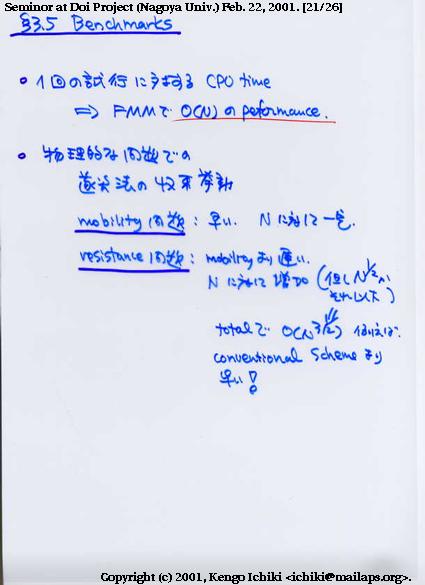 Seminar at Doi Project (Nagoya Univ.) Feb. 22, 2001. [21/26]
§3.5 Benchmarks
• 1回の試行に対する CPU time
⇒ FMMで O(N) の peformance.
• 物理的な問題での
逐次法の収束挙動
mobility問題 : 早い. Nに対して一定.
resistance問題 : mobilityより遅い.
Nに対して増加 (但し N^{1/2}か
それ以下)
totalで O(N^{3/2})
conventional schemeより
早い!
Copyright (c) 2001, Kengo Ichiki <ichiki@mailaps.org>.